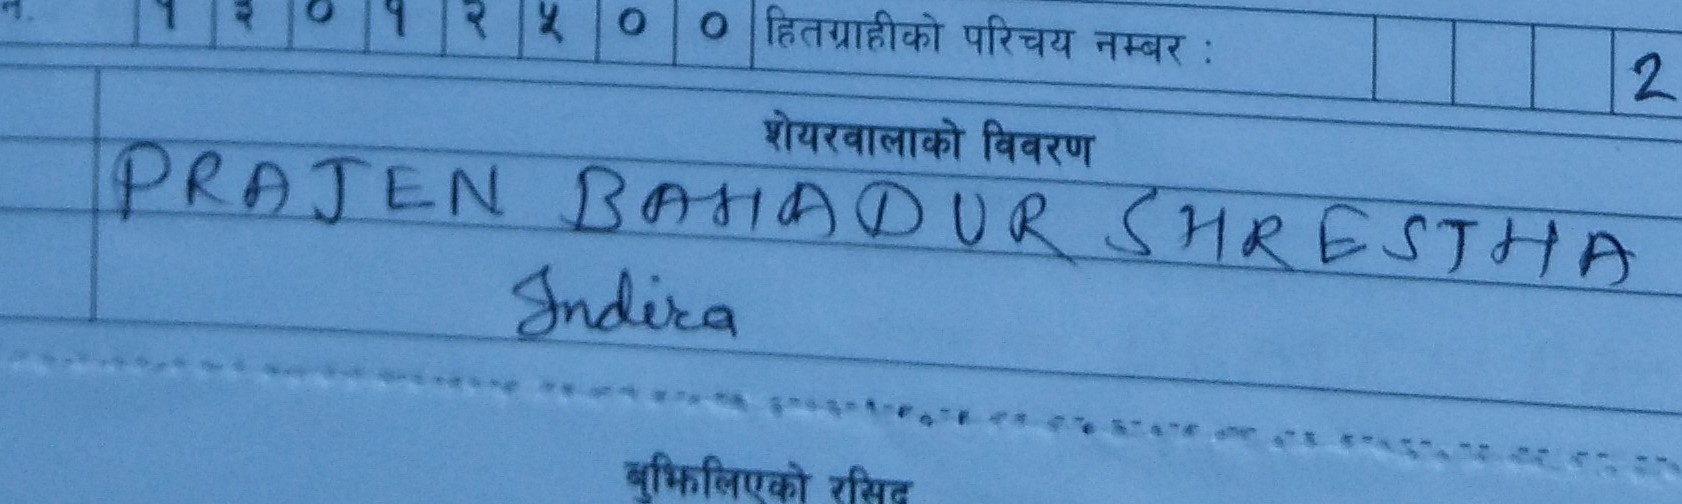 नं. १ ३ ० १ २ ५ ० ० हितग्राहीको परिचय नम्बर : 2
शेयरवालाको विवरण
PRAJEN BAHADUR SHRESTHA
Indira
बुझिलिएको रसिद